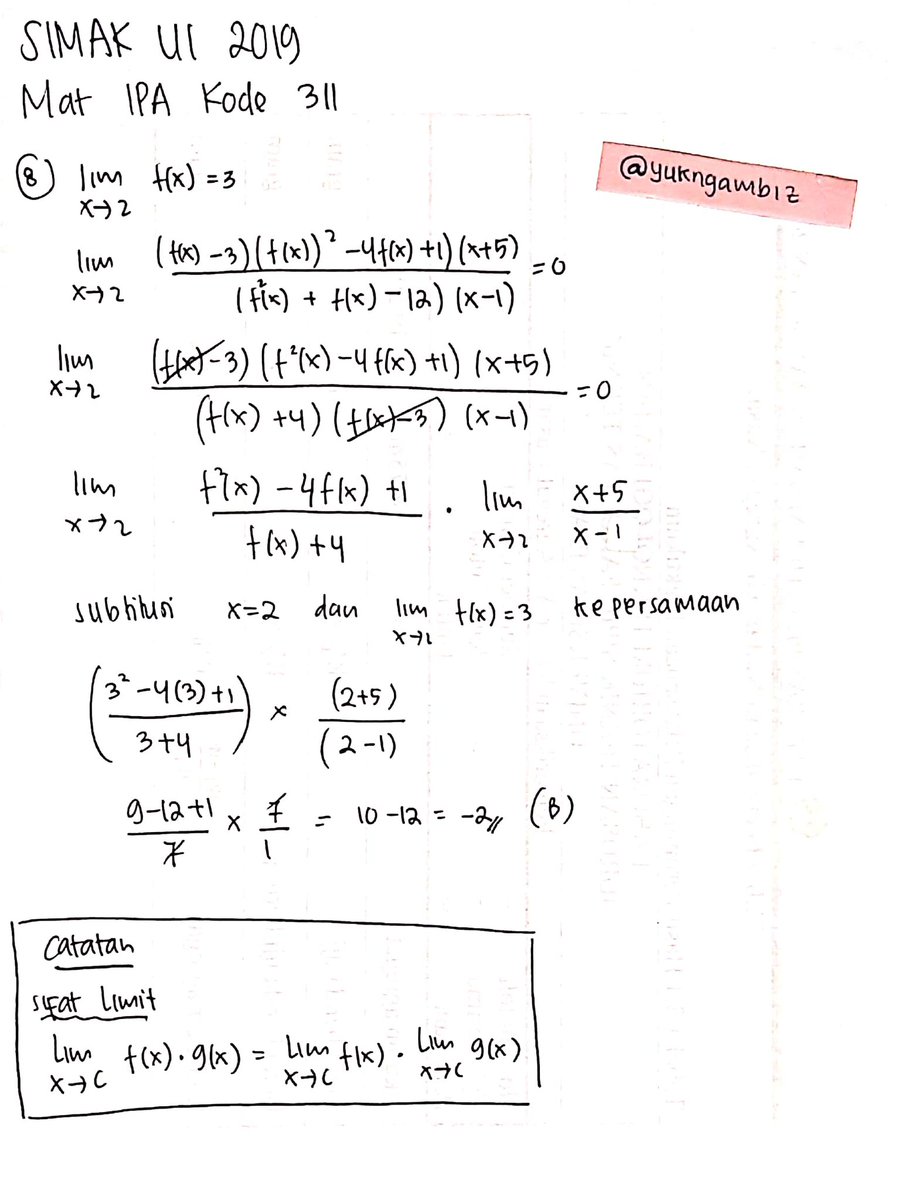 SIMAK UI 2019
Mat IPA Kode 311
@yukngambiz
⑧ lim x→2 f(x) = 3
lim x→2 (f(x) - 3)(f(x))² - 4f(x) + 1)(x+5) / (f²(x) + f(x) - 12)(x-1) = 0
lim x→2 (f(x) - 3)(f²(x) - 4f(x) + 1)(x+5) / (f(x) + 4)(f(x) - 3)(x-1) = 0
lim x→2 f²(x) - 4f(x) + 1 / f(x) + 4 . lim x→2 x+5 / x-1
subtitusi x=2 dan lim x→2 f(x) = 3 ke persamaan
(3² - 4(3) + 1 / 3+4) × (2+5) / (2-1)
9-12+1 / 7 × 7 / 1 = 10 - 12 = -2// (B)
Catatan
sifat Limit
Lim x→c f(x) . g(x) = Lim x→c f(x) . Lim x→c g(x)